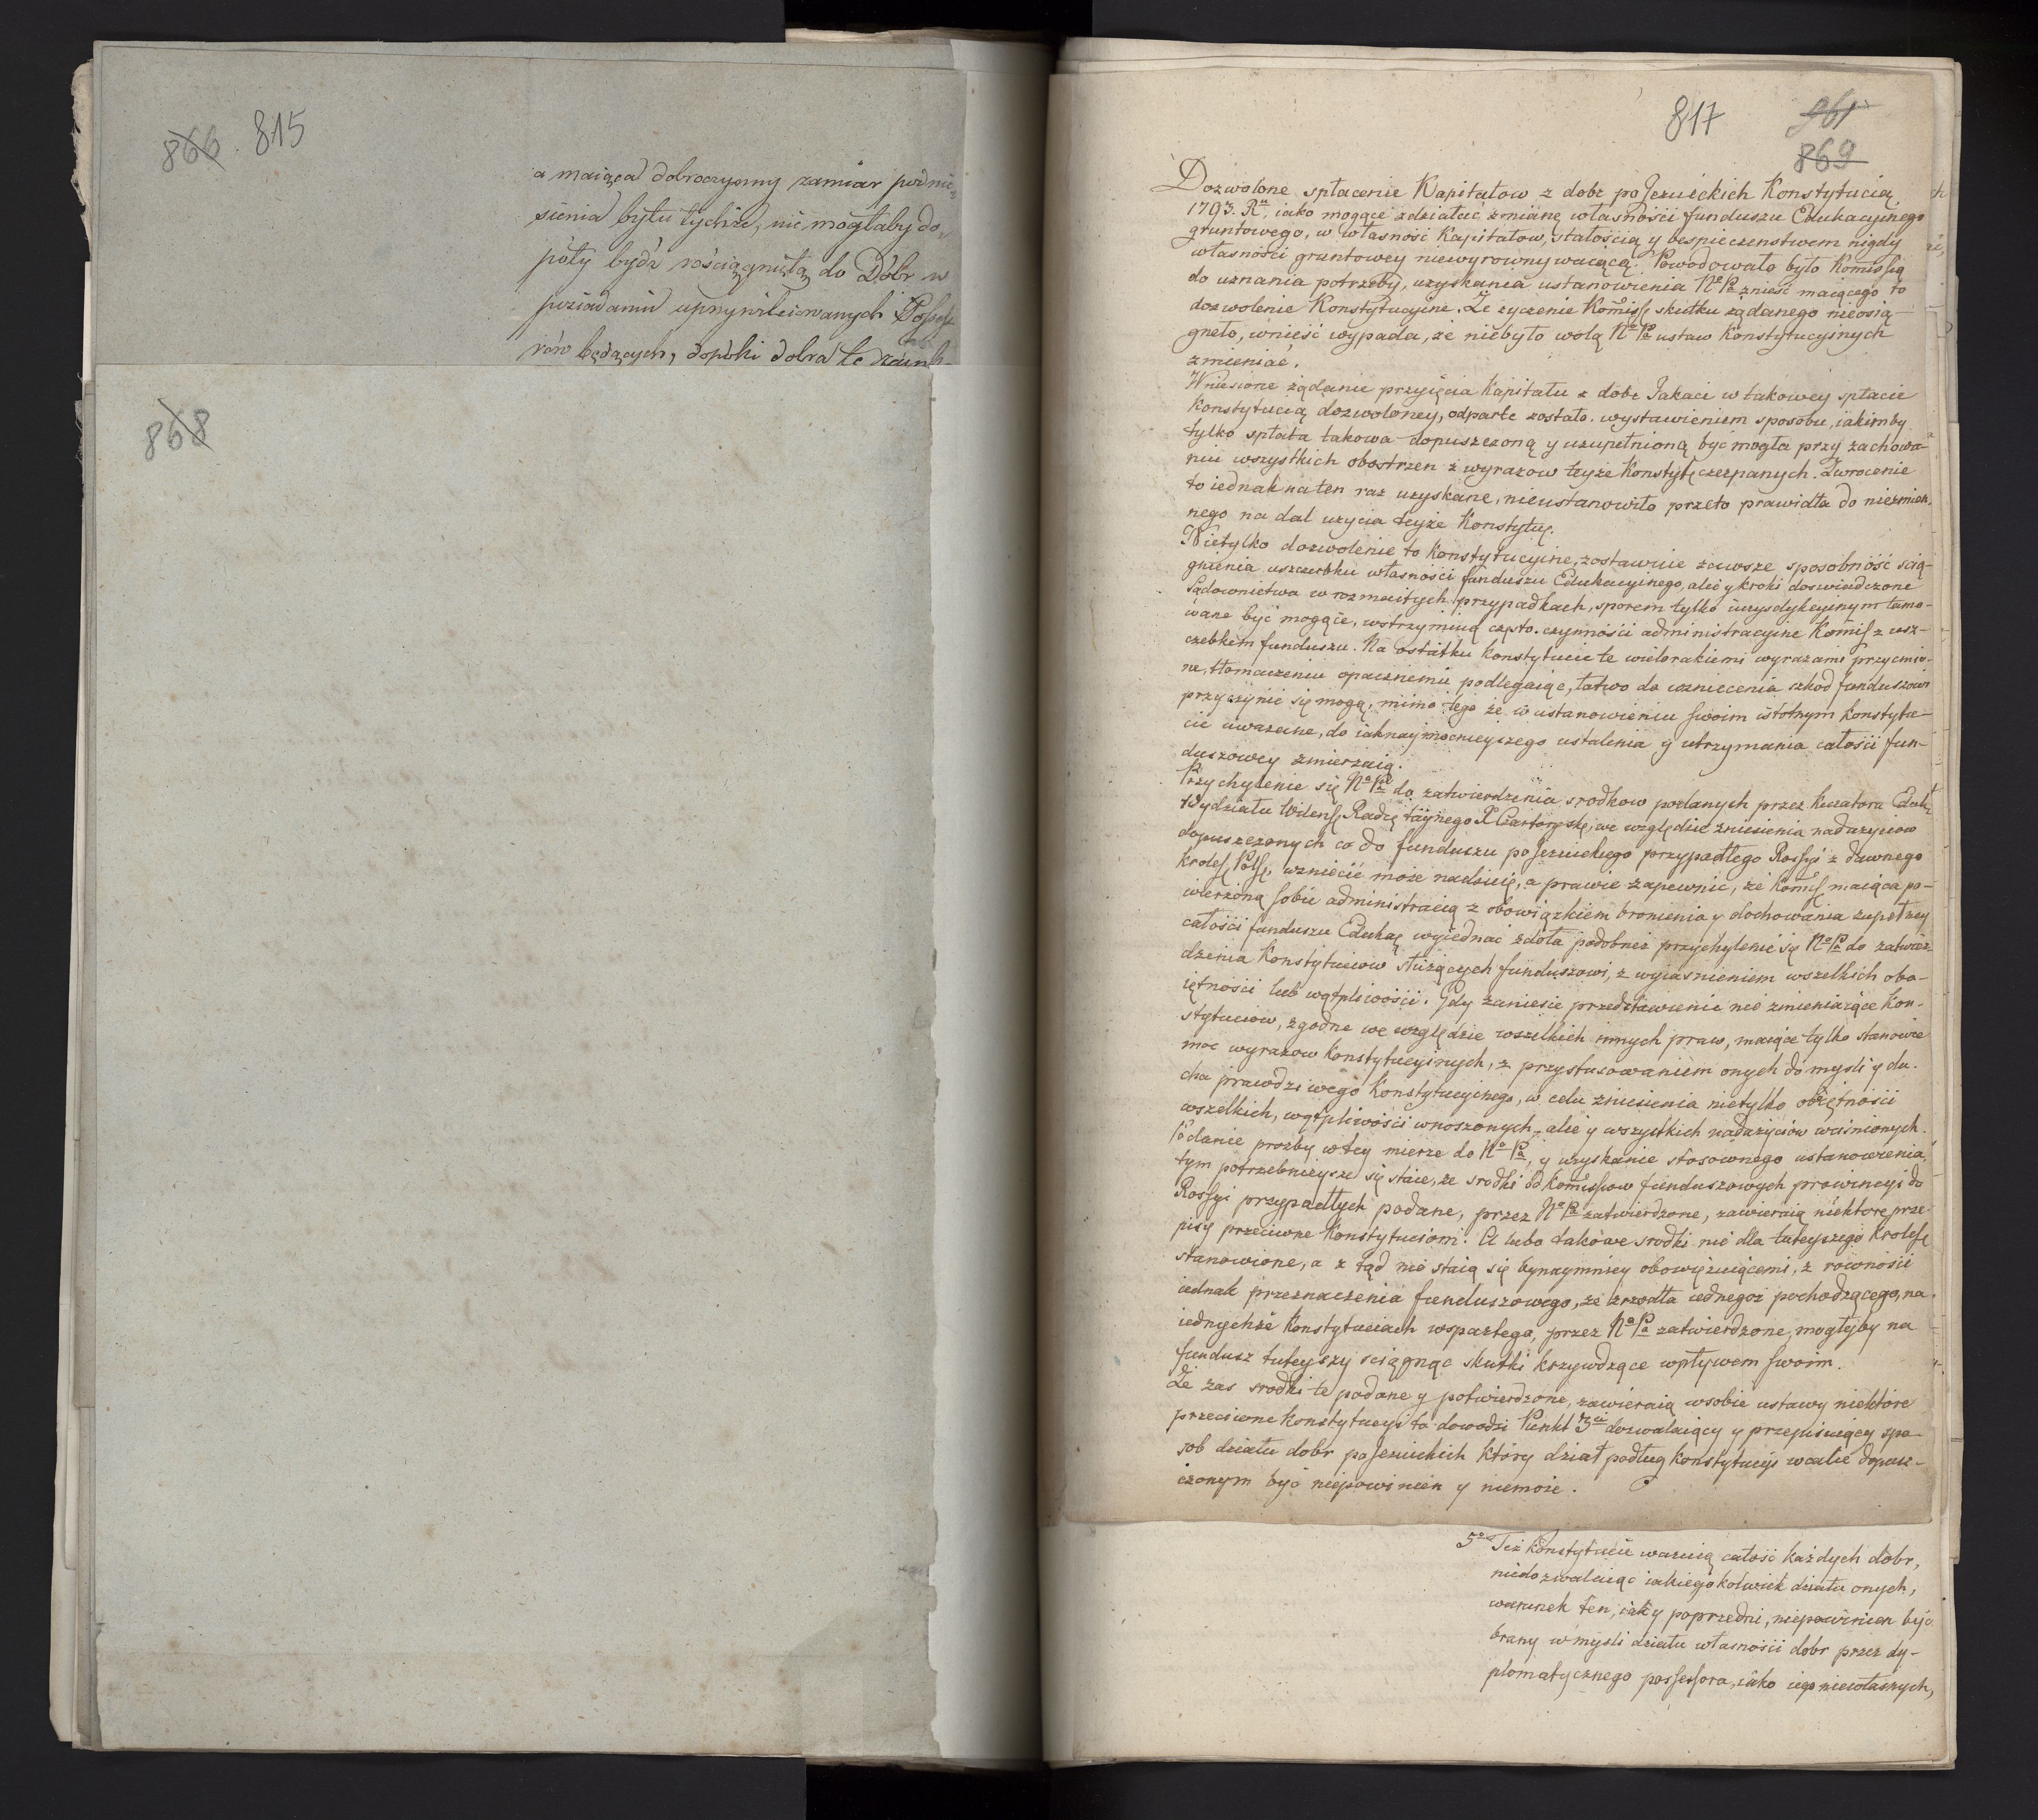 866 815
a maiąca dobroczynny zamiar podnie-
sienia bytu tychże, nie mogłaby do-
póty bydź rościągniętą do Dóbr w
posiadaniu uprzywileiowanych Posses-
rów będących, dopóki dobra te
868
817 961
869
Dozwolone spłacenie Kapitałow z dobr poJezuickich Konstytucią
1793. Ru, iako mogące zdziałać zmianę własności funduszu Edukacyinego
gruntowego, w własność Kapitałow, stałością y bespieczenstwem nigdy
własności gruntowey niewyrownywaiącą. Powodowało było Komissią
do uznania potrzeby, uzyskania ustanowienia No Pa znieść maiącego to
dozwolenie Konstytucyine. Że życzenie Komiss skutku żądanego nieosią-
gneło, wnieść wypada, że niebyło wolą No Pa ustaw Konstytucyinych
zmieniać.
Wniesione żądanie przyięcia Kapitału z dobr Jakaci w takowey spłacie
Konstytucią dozwoloney, odparte zostało, wystawieniem sposobu, iakimby
tylko spłata takowa dopuszczoną y uzupełnioną być mogła przy zachowa-
niu wszystkich obostrzen z wyrazow teyże Konstytę czerpanych. Zwrocenie
to iednak na ten raz uzyskane, nieustanowiło przeto prawidła do niezmien-
nego na dal użycia teyże Konstytuę.
Nietylko dozwolenie to Konstytucyine, zostawuie zawsze sposobność ścią-
gnienia uszczerbku własności funduszu Edukacyinego, ale y kroki doswiadczone
Sądownictwa w rozmaitych przypadkach, sporem tylko iurysdykcyinym tamo-
wane być mogące, wstrzymuią często czynności administracyine Komiss z usz-
czebkem funduszu. Na ostatku Konstytucie te wielorakiemi wyrazami przycmio-
ne, tłomaczeniu opacznemu podlegaiąc, łatwo do wzniecenia szkod funduszowi
przyczynić się mogą, mimo tego że w ustanowieniu swoim istotnym Konstytu-
cie uważane, do iaknaymocnieyszego ustalenia y utrzymania całości fun-
duszowey zmierzaią.
Przychylenie się No Pa do zatwierdzenia srodkow podanych przez Kuratora Eduk
Wydziału Wileńs Radcę taynego X Czartoryskę, we względzie zniesienia nadużyciow
dopuszczonych co do funduszu poJezuickiego przypadłego Rossyi z dawnego
Krolesę Polsę, wzniecić może nadzieię, a prawie zapewnić, że Komiss maiąca po-
wierzoną sobie administracią z obowiązkiem bronienia y dochowania zupełney
całości funduszu Edukaę wyiednać zdoła podobnież przychylenie się No Pa do zatwier-
dzenia Konstytuciow służących funduszowi, z wyiasnieniem wszelkich obo-
iętności lub wątpliwości. Gdy zaniesie przedstawienie nie zmieniaiące Kon-
stytuciow, zgodne we względzie wszelkich innych praw, maiące tylko stanowić
moc wyrazow Konstytucyinych, z przystosowaniem onych do mysli y du-
cha prawdziwego Konstytucyinego, w celu zniesienia nietylko oboiętności
wszelkich, wątpliwości wnoszonych, ale y wszystkich nadużyciow wcisnionych.
Podanie prozby w tey mierze do No Pa, y uzyskanie stosownego ustanowienia,
tym potrzebnieysze się staie, że srodki od Komissiow funduszowych prowincyi do
Rossyi przypadłych podane, przez No Pa zatwierdzone, zawieraią niektore prze-
pisy przeciwne Konstytuciom. A lubo takowe srodki nie dla tuteyszego Krolesę
stanowione, a z tąd nie staią się bynaymniey obowięzuiącemi, z rowności
iednak przeznaczenia funduszowego, ze zrzodła iednegoż pochodzącego, na
iednychże Konstytuciach wspartego, przez No Pa zatwierdzone, mogłyby na
fundusz tuteyszy sciągnąc skutki krzywdzące wpływem swoim.
Że zas srodki te podane y potwierdzone, zawieraią w sobie ustawy niektore
przeciwne Konstytucyi to dowodzi Punkt 3ci dozwalaiący y przepisuiący spo-
sob działu dobr poJezuickich który dział podług Konstytucyi wcale dopusz-
czonym być niepowinien y niemoże.
5o Też Konstytucie waruią całość każdych dobr,
niedozwalaiąc iakiegokolwiek działu onych,
warunek ten, iak y poprzedni, niepowinien być
brany w mysli działu własności dobr przez dy-
plomatycznego possessora, iako iego niewłasnych,